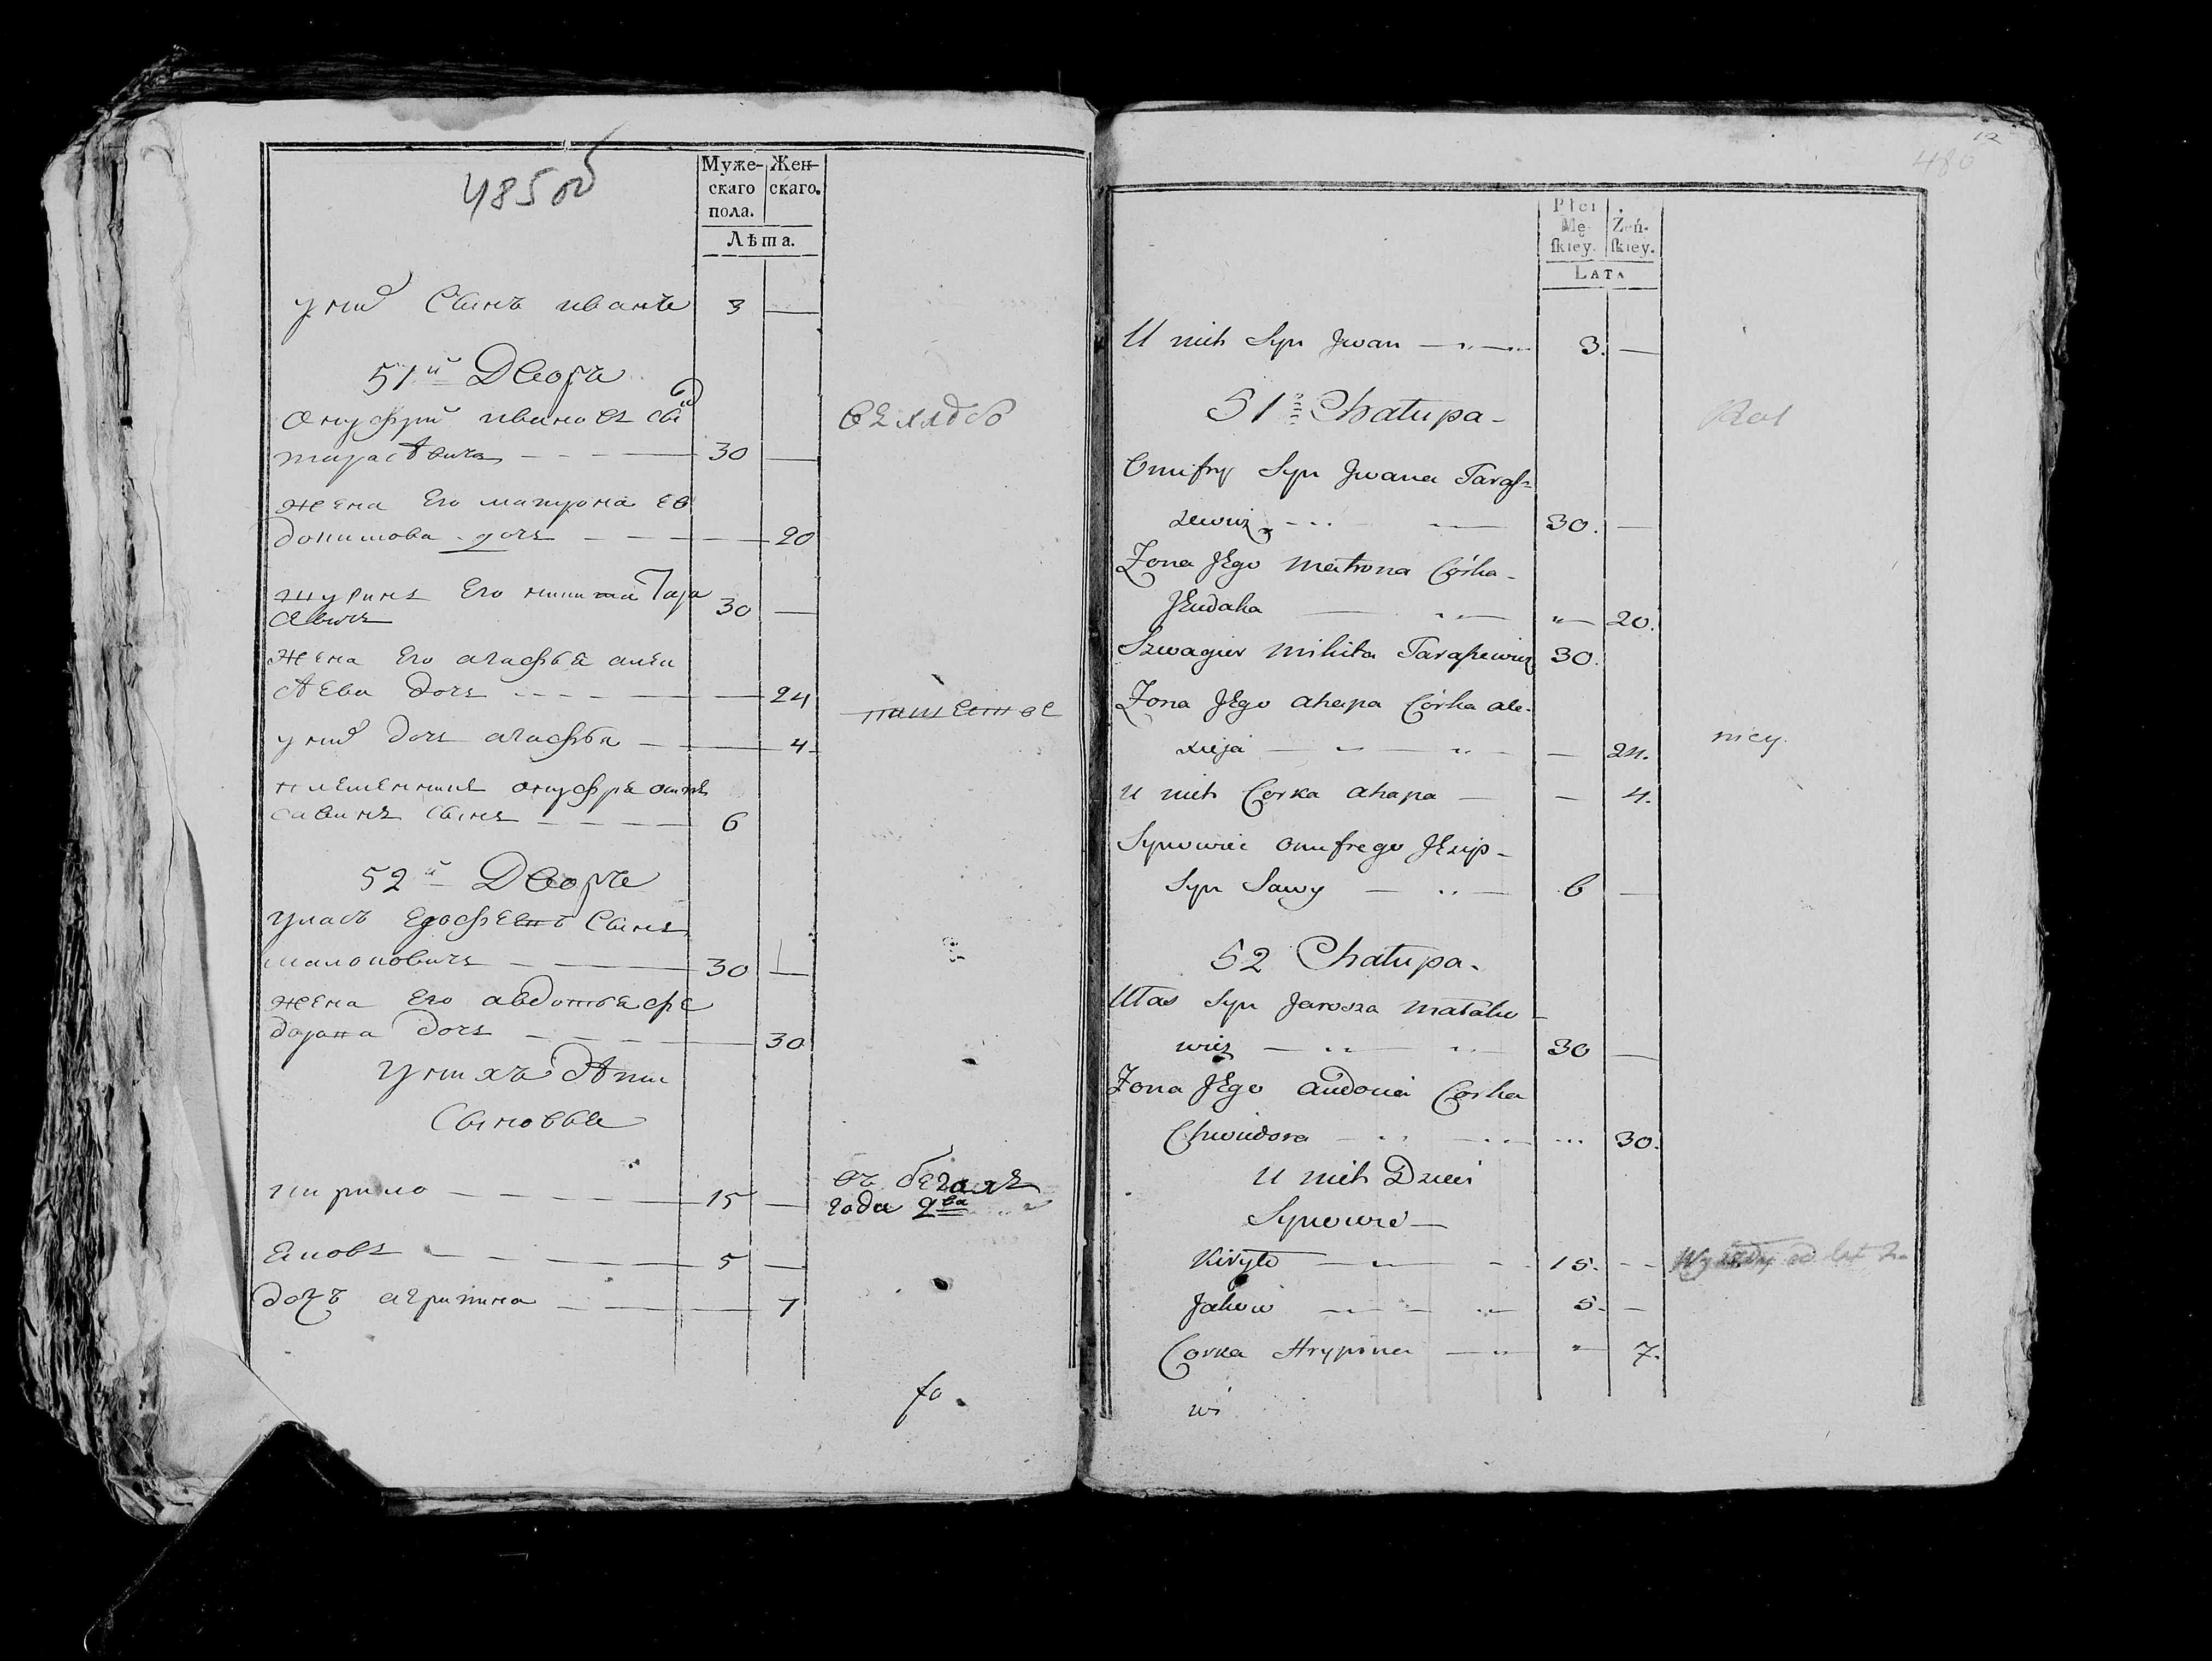 485 об
Муже-
скаго
пола.
Жен-
скаго.
Лѣта.
у них Сынъ иванъ 3 —
51й Дворъ
Онуфрий ивановъ сын
тарасѣвичъ 30 —
жена Его матрона ев
докимова дочь — 20
шуринъ Его никита Тара
севичъ 30 —
жена Его агафья алек
сѣева дочь — 24
у них дочь агафья — 4
племенникъ онуфрея осипъ
савинъ сынъ 6
52й Дворъ
уласъ ерофеевъ Сынъ
малоковичъ 30 —
жена Его авдотья фе
дорова дочь — 30
у нихъ дѣти
Сыновья
кирило 15 —
въ бегахъ
года два
яковъ 5 —
дочъ агрипина — 7
fo.
12
486
Płci
Mę-
ſkiey.
Żeń-
ſkiey.
LATA
U nich Syn Jwan 3. —
51 Chałupa -
Rol
Onufry Syn Jwana Taraſ-
zewicz 30. —
Zona JEgo Matrona Córka -
JEudaka 20.
Szwagier Mikita Taraſzewicz 30.
Zona JEgo ahapa Córka ale-
xieja — 24.
nicy.
U nich Corka ahapa — 4.
Synowiec onufrego JEzip -
Syn Sawy 6 —
52 Chałupa -
Ułas Syn Jarosza Małako -
wicz 30 —
Zona JEgo audocia Corka
Chwiedora 30.
U nich Dzieci
Synowie —
Kiryło 15. —
Jakow 5. —
Corka Hrypina 7.